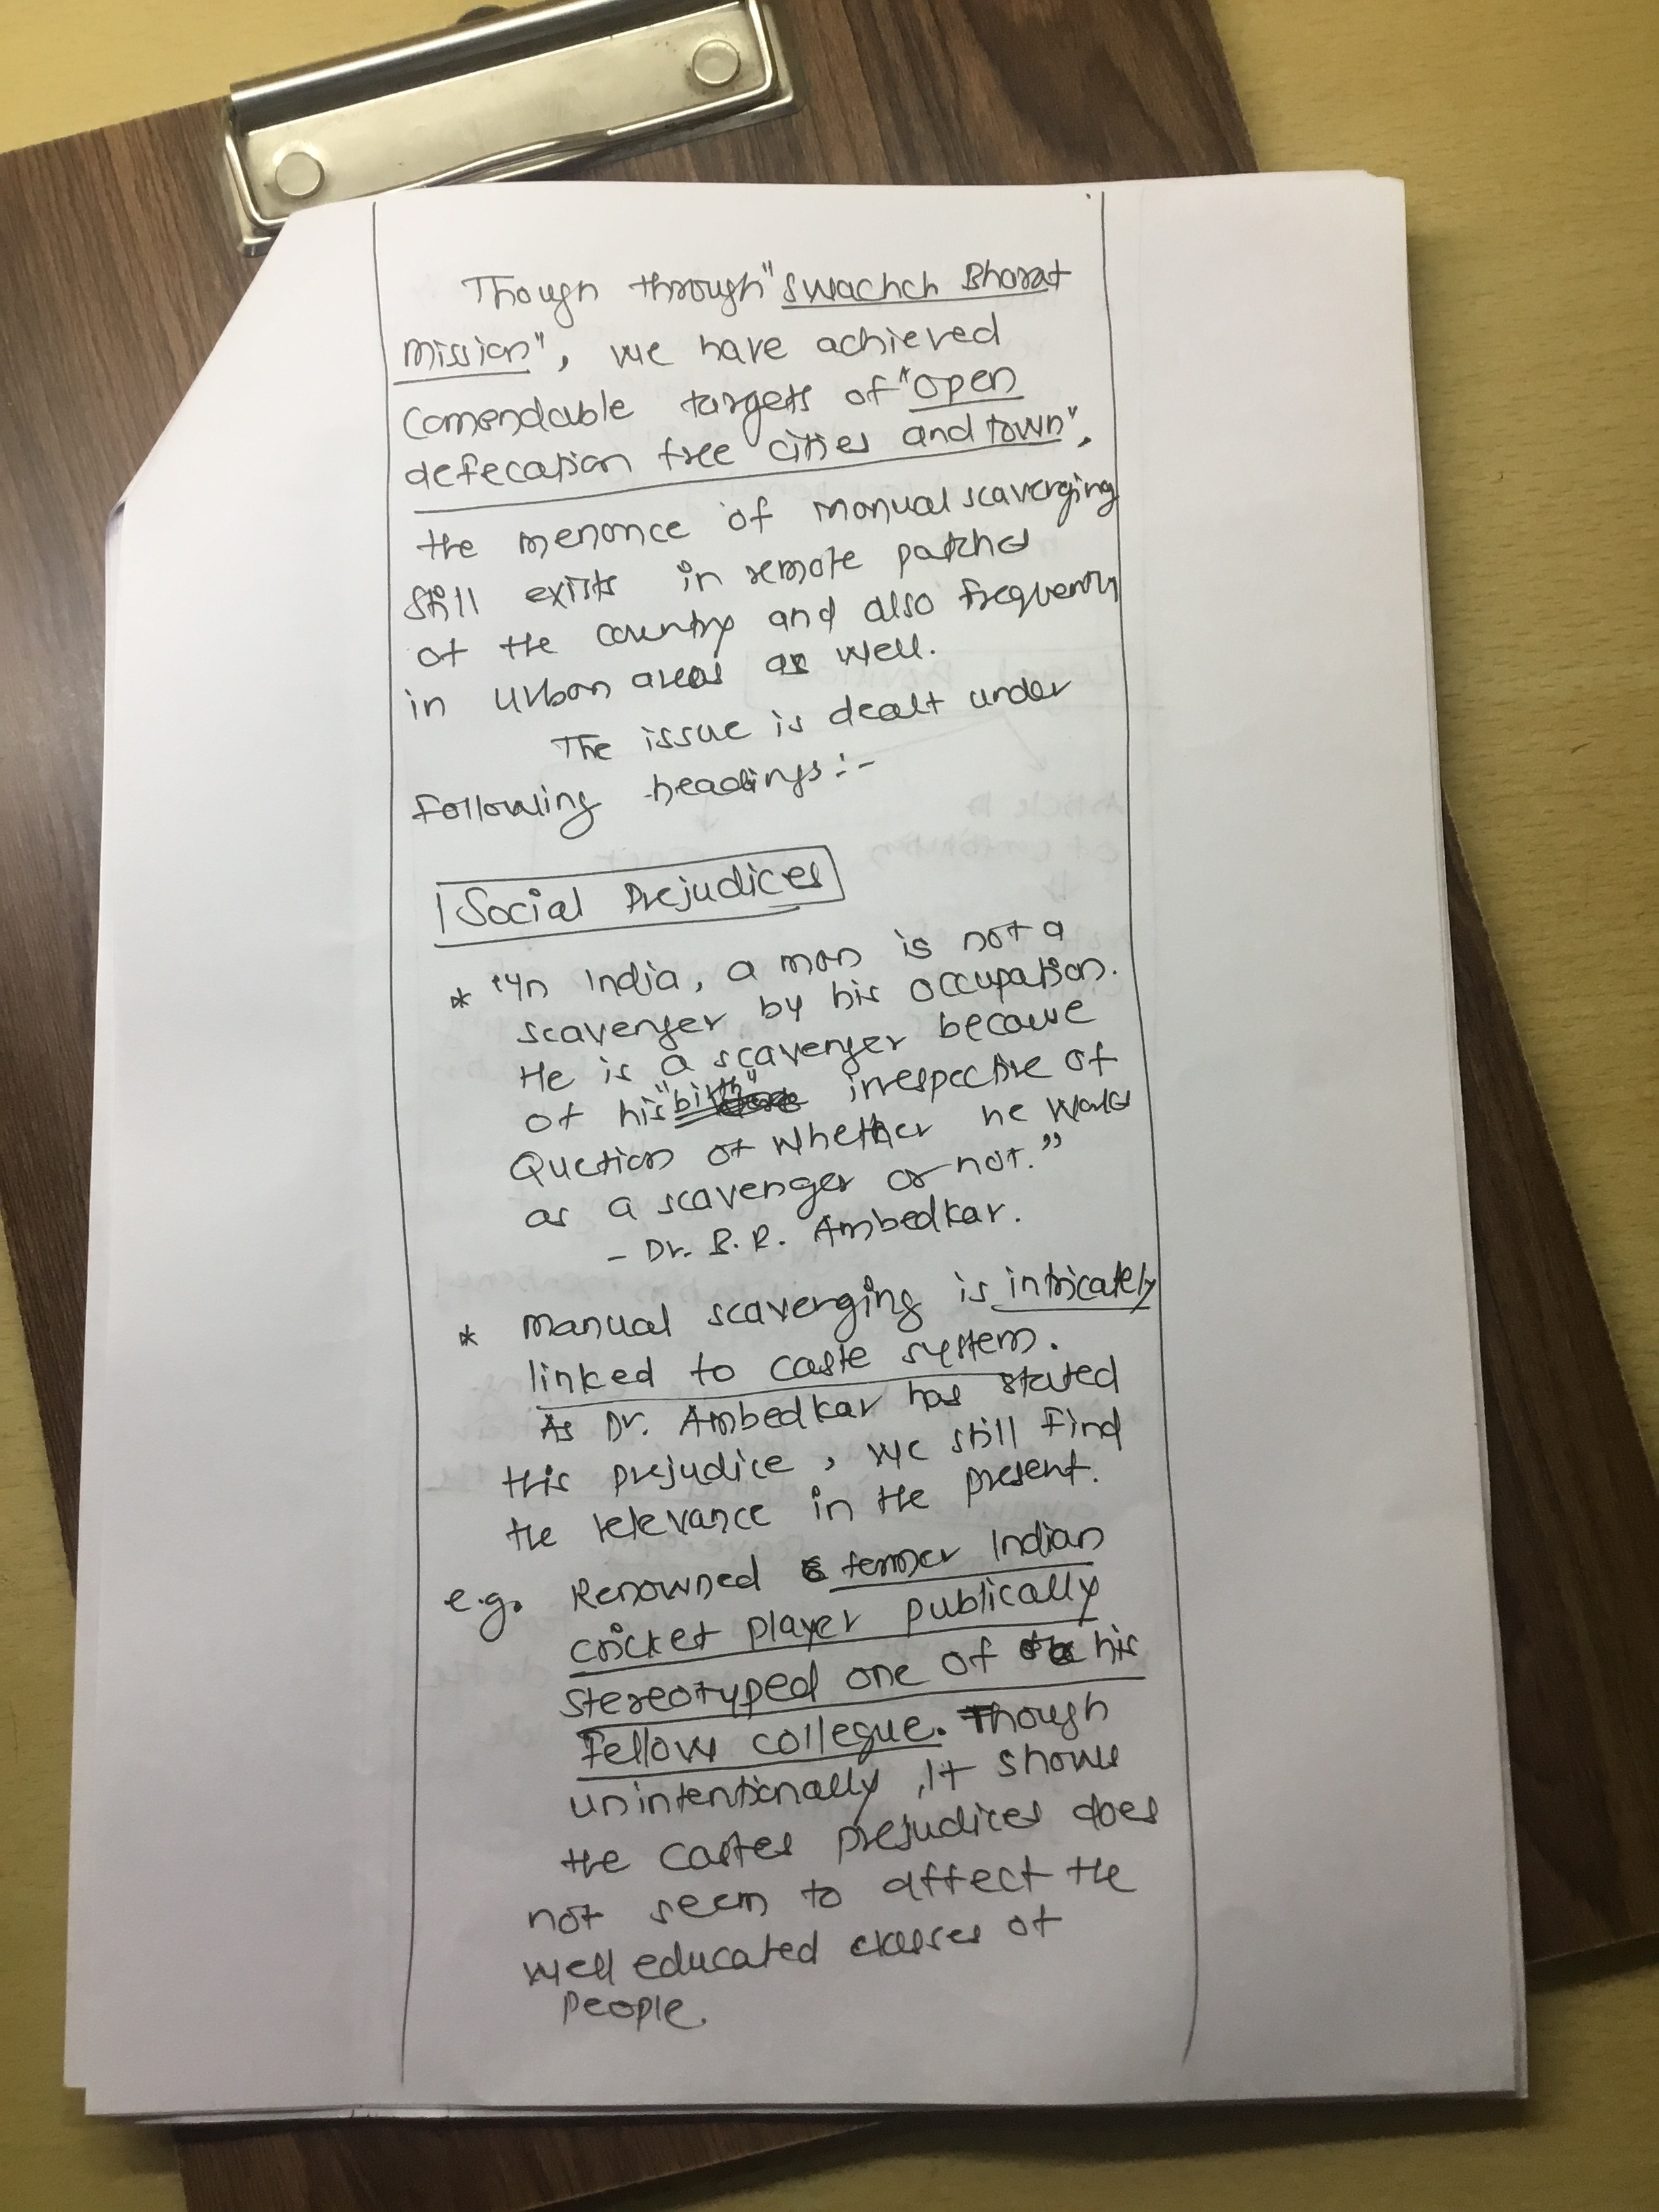 Though through "Swachch Bharat
Mission", we have achieved
Comendable targets of "open
defecation free cities and town",
the menance of manual scaverging
still exists in remote patches
of the country and also frequently
in urban areas as well.
The issue is dealt under
following headings :-
Social Prejudices
* "In India, a man is not a
scavenger by his occupation.
He is a scavenger because
of his "birth" irrespective of
Question of whether he works
as a scavenger or not."
- Dr. B. R. Ambedkar.
* Manual scaverging is intricately
linked to caste system.
As Dr. Ambedkar has stated
this prejudice, we still find
the relevance in the present.
e.g. Renowned former Indian
cricket player publically
stereotyped one of his
fellow collegue. Though
unintentionally, It shows
the castes prejudices does
not seem to affect the
well educated classes of
people.